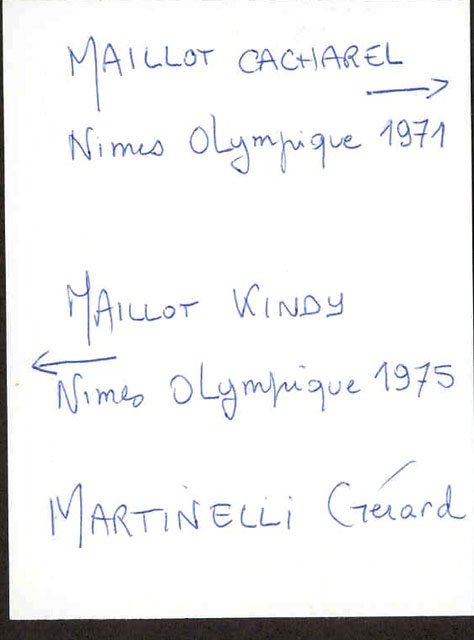 MAILLOT CACHAREL
→
Nimes Olympique 1971
MAILLOT KINDY
←
Nimes Olympique 1975
MARTINELLI Gérard